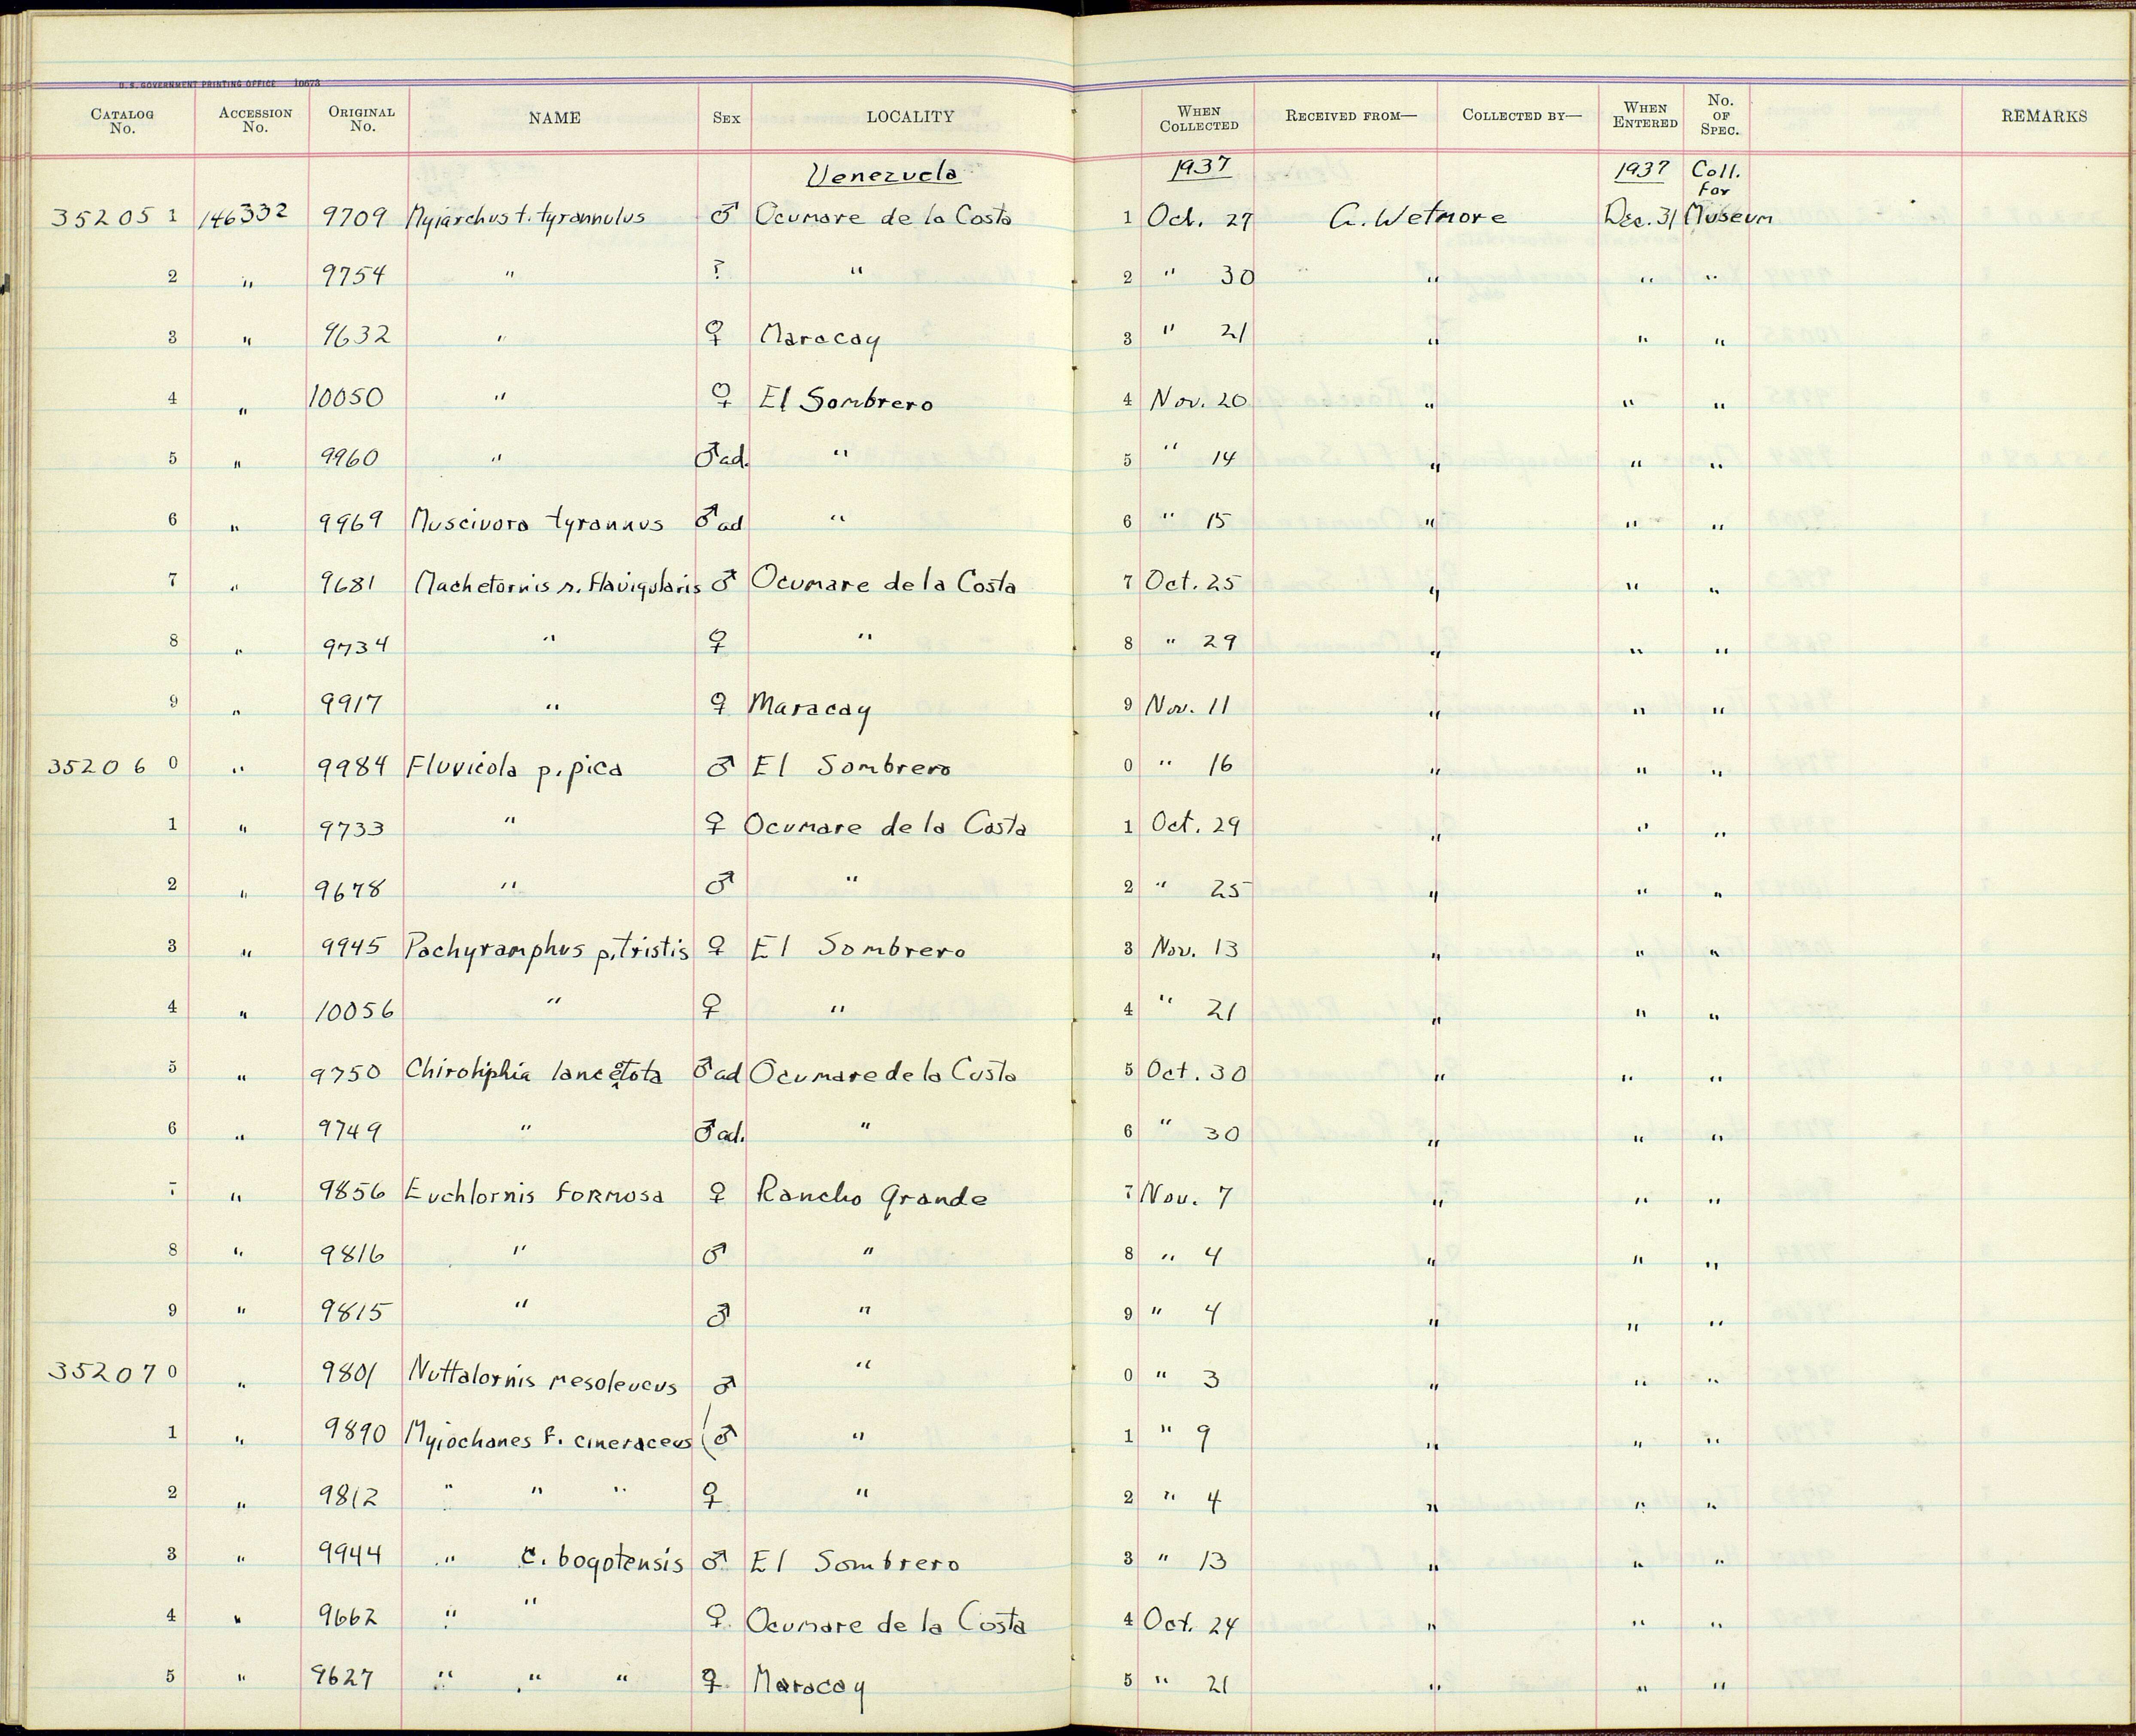 U.S. GOVERNMENT PRINTING OFFICE 10673
CATALOG No. ACCESSION No. ORIGINAL No. NAME SEX LOCALITY WHEN COLLECTED RECEIVED FROM— COLLECTED BY— WHEN ENTERED No. OF SPEC. REMARKS
Venezuela 1937 1937 Coll. for
352051 146332 9709 Myiarchus t. tyrannulus ♂ Ocumare de la Costa 1 Oct. 27 A. Wetmore Dec. 31 Museum
2 " 9754 " ? " 2 " 30 " " "
3 " 9632 " ♀ Maracay 3 " 21 " " "
4 " 10050 " ♀ El Sombrero 4 Nov. 20 " " "
5 " 9960 " ♂ad. " 5 " 14 " " "
6 " 9969 Muscivora tyrannus ♂ad " 6 " 15 " " "
7 " 9681 Machetornis r. flavigularis ♂ Ocumare de la Costa 7 Oct. 25 " " "
8 " 9734 " ♀ " 8 " 29 " " "
9 " 9917 " ♀ Maracay 9 Nov. 11 " " "
352060 " 9984 Fluvicola p. pica ♂ El Sombrero 0 " 16 " " "
1 " 9733 " ♀ Ocumare de la Costa 1 Oct. 29 " " "
2 " 9678 " ♂ " 2 " 25 " " "
3 " 9945 Pachyramphus p. tristis ♀ El Sombrero 3 Nov. 13 " " "
4 " 10056 " ♀ " 4 " 21 " " "
5 " 9750 Chiroxiphia lanceolata ♂ad Ocumare de la Costa 5 Oct. 30 " " "
6 " 9749 " ♂ad. " 6 " 30 " " "
7 " 9856 Euchlornis formosa ♀ Rancho Grande 7 Nov. 7 " " "
8 " 9816 " ♂ " 8 " 4 " " "
9 " 9815 " ♂ " 9 " 4 " " "
352070 " 9801 Nuttalornis mesoleucus ♂ " 0 " 3 " " "
1 " 9890 Myiochanes f. cineraceus (♂ " 1 " 9 " " "
2 " 9812 " " " ♀ " 2 " 4 " " "
3 " 9944 " c. bogotensis ♂ El Sombrero 3 " 13 " " "
4 " 9662 " " ♀ Ocumare de la Costa 4 Oct. 24 " " "
5 " 9627 " " " ♀ Maracay 5 " 21 " " "